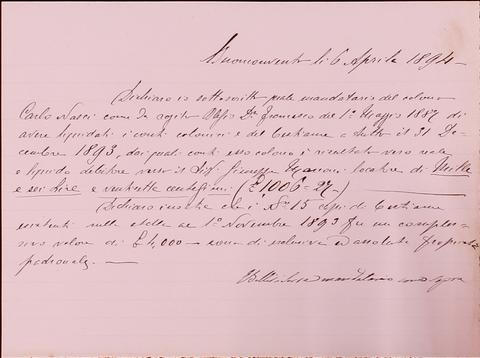 Buonconvento li 6 Aprile 1894 —
Dichiaro io sottoscritto quale mandatario del colono
Carlo Nasci come da rogito Francesco del 1° Maggio 1887 di
avere liquidati i conti colonici e del bestiame a tutto il 31 De-
cembre 1893, dai quali conti esso colono è resultato vero reale
e liquido debitore verso il Sig. Giuseppe locatore di Mille
e sei Lire e ventisette centesimi (£ 1006=27 —)
Dichiaro inoltre che i N. 15 capi di bestiame
esistenti nella stalla al 1° Novembre 1893 per un comples-
sivo valore di £ 4,000 — sono di esclusiva ed assoluta proprietà
padronale. —
mandatario come sopra